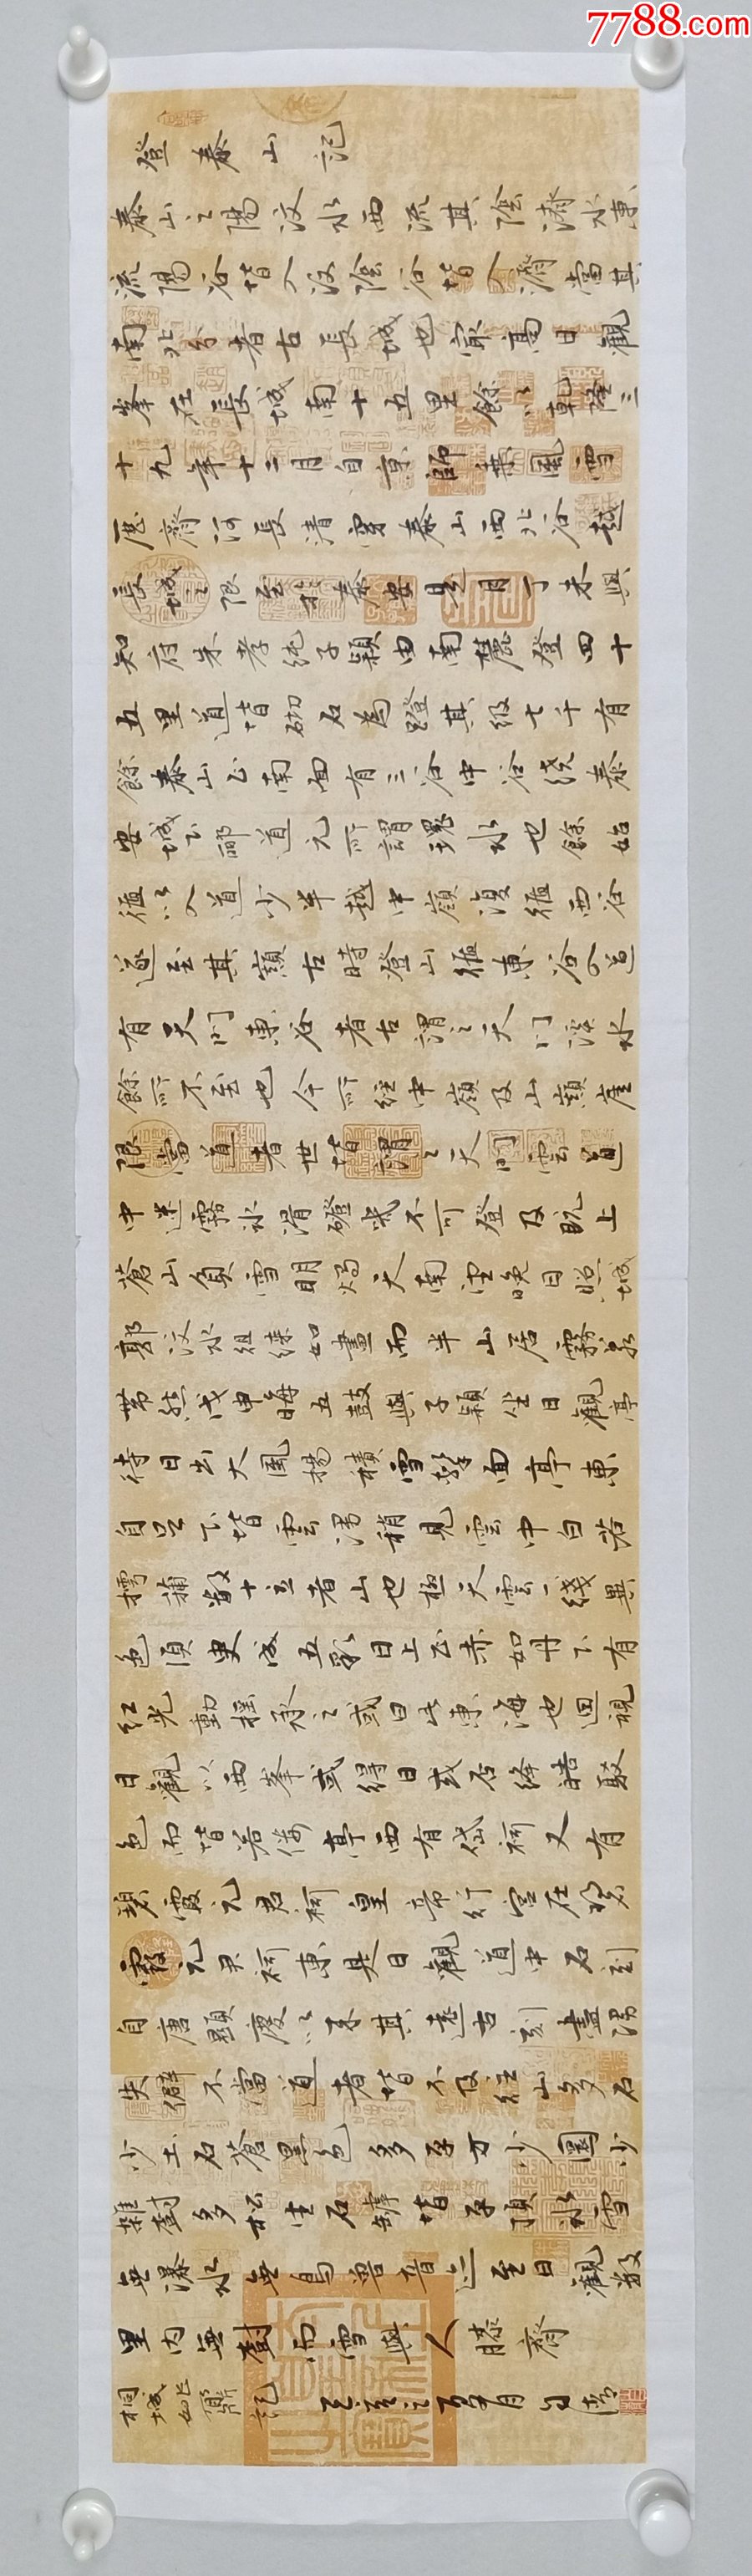 7788.com
登泰山記
泰山之陽汶水西流其陰濟水東
流陽谷皆入汶陰谷皆入濟當其
南北分者古長城也最高日觀
峯在長城南十五里餘以乾隆三
十九年十二月自京師乘風雪
歷齊河長清穿泰山西北谷越
長城之限至於泰安是月丁未與
知府朱孝純子潁由南麓登四十
五里道皆砌石為磴其級七千有
餘泰山正南面有三谷中谷繞泰
安城下酈道元所謂環水也餘始
循以入道少半越中嶺復循西谷
遂至其巔古時登山循東谷入道
有天門東谷者古謂之天門溪水
餘所不至也今所經中嶺及山巔崖
限當道者世皆謂之天門雲道
中迷霧冰滑磴幾不可登及既上
蒼山負雪明燭天南望晚日照城
郭汶水徂徠如畫而半山居霧若
帶然戊申晦五鼓與子潁坐日觀亭
待日出大風揚積雪擊面亭東
自足下皆雲漫稍見雲中白若
摴蒱數十立者山也極天雲一綫異
色須臾成五彩日上正赤如丹下有
紅光動搖承之或曰此東海也迴視
日觀以西峯或得日或否絳皓駁
色而皆若僂亭西有岱祠又有
碧霞元君祠皇帝行宮在碧
霞元君祠東是日觀道中石刻
自唐顯慶以來其遠古刻盡漫
失僻不當道者皆不及往山多石
少土石蒼黑色多平方少圜少
雜樹多松生石罅皆平頂冰雪
無瀑水無鳥獸音迹至日觀數
里內無樹而雪與人膝齊
桐城姚鼐記